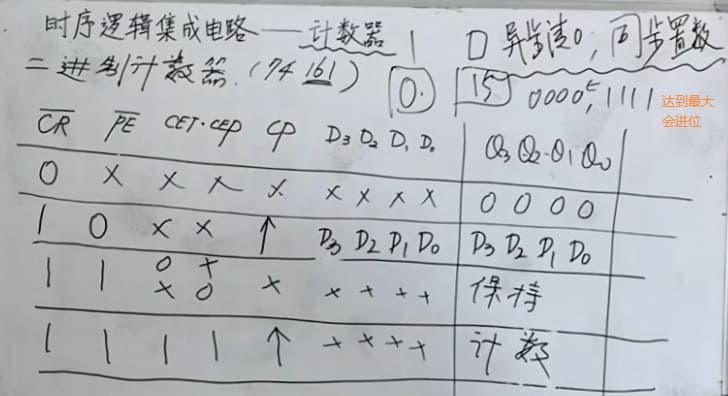 时序逻辑集成电路——计数器 | D 异步清0; 同步置数
二进制计数器.(74 161) 0. 15 0000~1111 达到最大
会进位
CR PE CET·CEP CP D3 D2 D1 D0 Q3 Q2 Q1 Q0
0 × × × × × × × × 0 0 0 0
1 0 × × ↑ D3 D2 D1 D0 D3 D2 D1 D0
1 1 0 × × × × × × 保持
× 0
1 1 1 1 ↑ × × × × 计数